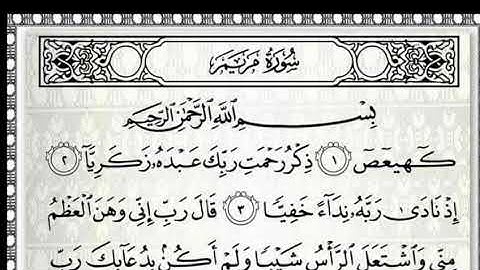 سُورَةُ مَرْيَمَ
بِسْمِ اللَّهِ الرَّحْمَٰنِ الرَّحِيمِ
كٓهيعٓصٓ ١ ذِكْرُ رَحْمَتِ رَبِّكَ عَبْدَهُۥ زَكَرِيَّآ ٢
إِذْ نَادَىٰ رَبَّهُۥ نِدَآءً خَفِيًّا ٣ قَالَ رَبِّ إِنِّي وَهَنَ الْعَظْمُ
مِنِّي وَاشْتَعَلَ الرَّأْسُ شَيْبًا وَلَمْ أَكُنۢ بِدُعَآئِكَ رَبِّ